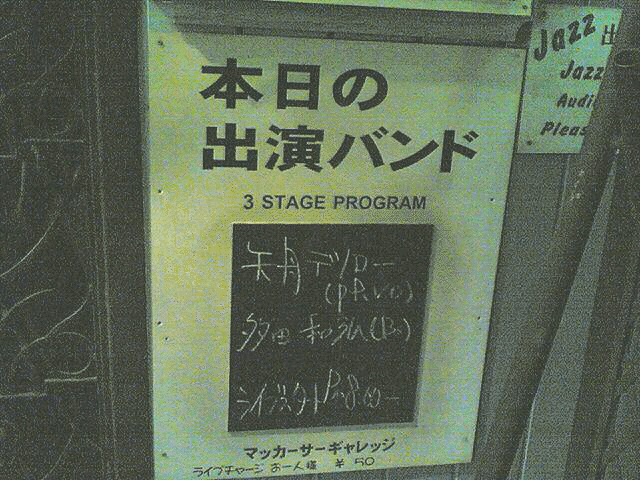 本日の
出演バンド
3 STAGE PROGRAM
天丹 デリロー
(P&VO)
多田 和弘(Bs)
ライブスタート PM8:00〜
マッカーサーギャレッジ
ライブチャージ お一人様 ¥50
Jazz 出
Jazz
Audi
Pleas